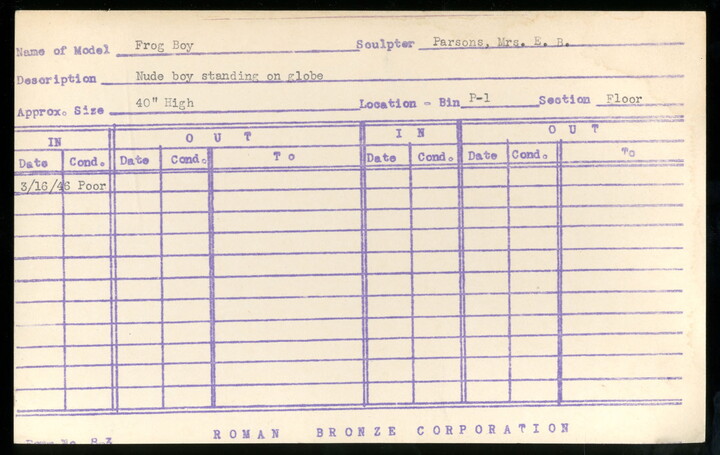 Name of Model Frog Boy Sculpter Parsons, Mrs. E. B.
Description Nude boy standing on globe
Approx. Size 40" High Location - Bin P-1 Section Floor
IN OUT IN OUT
Date Cond. Date Cond. To Date Cond. Date Cond. To
3/16/46 Poor
Form No. R-3 ROMAN BRONZE CORPORATION